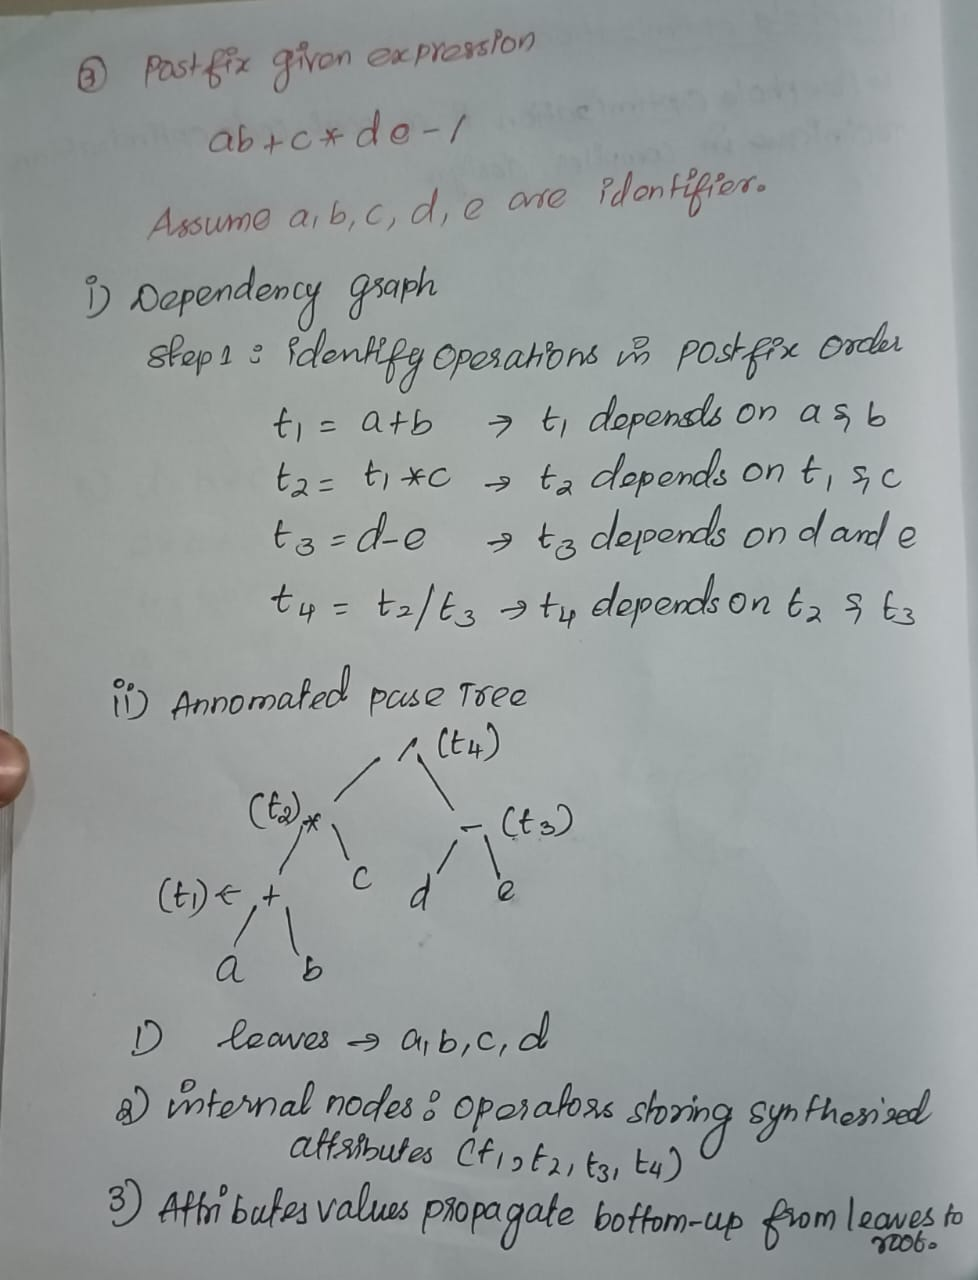 ③ Postfix given expression
ab+c*de-/
Assume a, b, c, d, e are identifier.
i) Dependency graph
Step 1 : identify operations in postfix order
t1 = a+b → t1 depends on a & b
t2 = t1 *c → t2 depends on t1 & c
t3 = d-e → t3 depends on d and e
t4 = t2/t3 → t4 depends on t2 & t3
ii) Annomated pase Tree
/ (t4)
(t2) * - (t3)
(t1) ← + c d e
a b
1) leaves → a, b, c, d
2) internal nodes : operators storing synthesised
attributes (t1, t2, t3, t4)
3) Attributes values propagate bottom-up from leaves to
root.